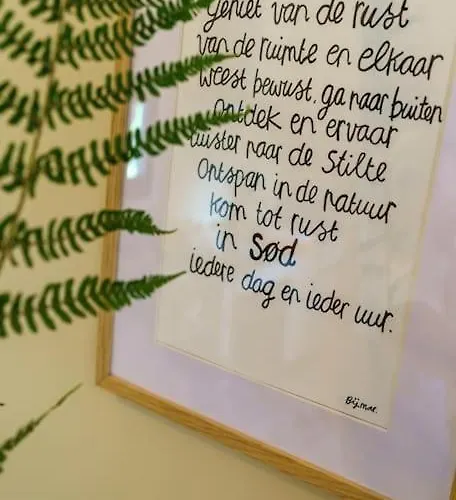 geniet van de rust
van de ruimte en elkaar
weest bewust, ga naar buiten
ontdek en ervaar
luister naar de stilte
Ontspan in de natuur
kom tot rust
in Sød
iedere dag en ieder uur.
Bijmar.